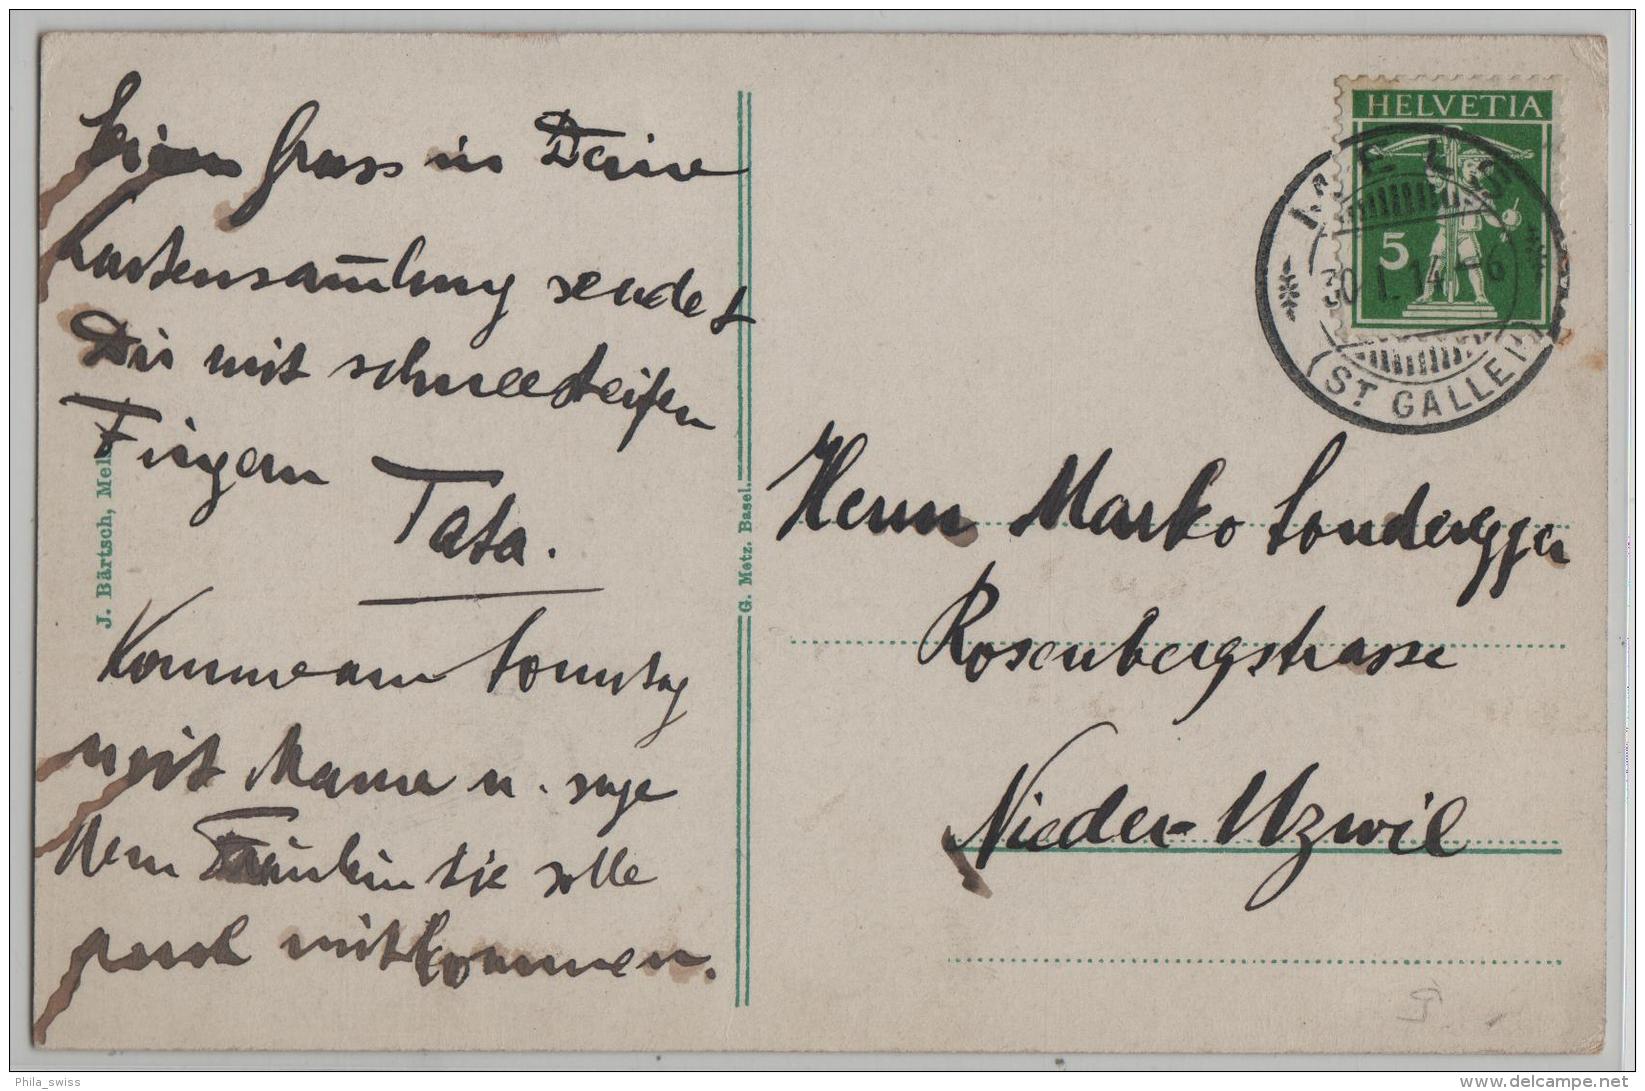 Gruss in Deine
Kartensammlung sendet
Dir mit schneesteifen
Fingern Tata.
Komme am Sonntag
mit Mama u. sage
dem sie solle
auch mitkommen.
J. Bärtsch, Mels
G. Metz. Basel.
HELVETIA
5
MELS
30.I.14.-6
(ST GALLEN)
Herrn Marko Sonderegger
Rosenbergstrasse
Nieder-Uzwil
Phila_swiss
delcampe.net